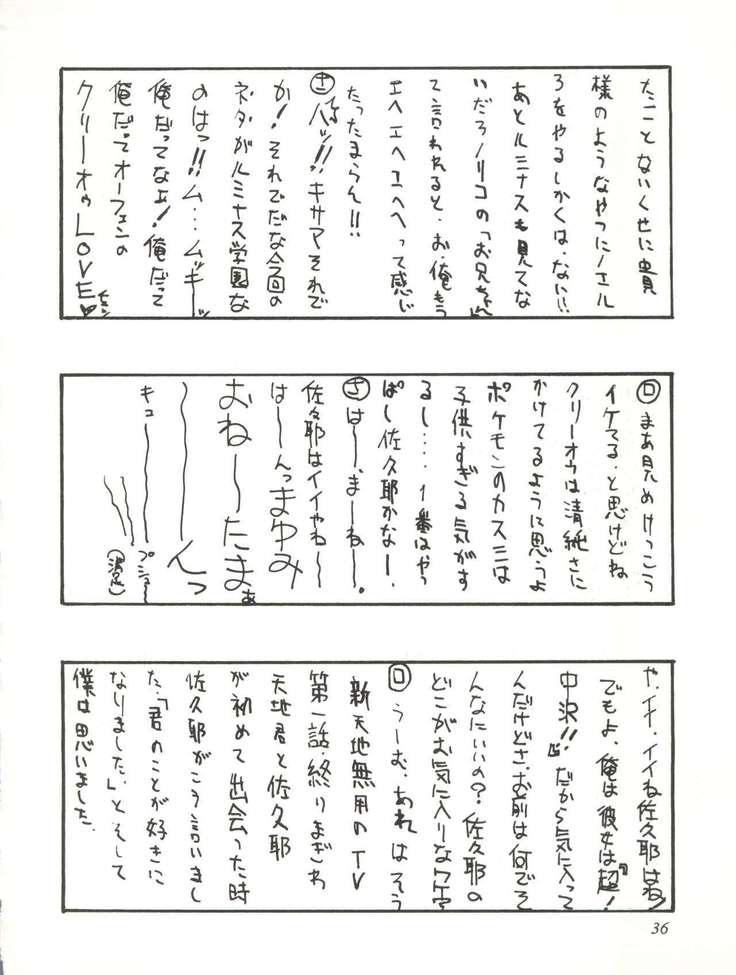 たことないくせに貴
様のようなやつにノエル
ろをやるしかくは、ない!!
あとルミナスも見てな
いだろノリコの「お兄ちゃん」
て言われると、お、俺もう
エヘエヘエヘヘって感じ
たったまらん!!
ハッ!!キサマそれで
か!それでだな今回の
ネタがルミナス学園な
のはっ!!ム…ムッキーッ
俺だってなぁ!俺だって
俺だってオーフェンの
クリーオゥLOVE♡
ロ まあ見ためけっこう
イケてる、と思けどね
クリーオウは清純さに
かけてるように思うよ
ポケモンのカスミは
子供すぎる気がす
るし…、1番はやっ
ぱし佐久耶かなー、
さ は〜、まーねー。
佐久耶はイイやね〜
は〜んっまゆみ
おね〜たまぁ
〜んっ
キュー
プシュー
や、イイ、イイね佐久耶はね!
でもよ、俺は彼女は『超!
中沢!!』だから気に入って
んだけどさ、お前は何でそ
んなにいいの?佐久耶の
どこがお気に入りなワケ?
ロ うーむ、あれはそう
新天地無用のTV
第一話、終りまぎわ
天地君と佐久耶
が初めて出会った時
佐久耶がこう言いまし
た、「君のことが好きに
なりました。」とそして
僕は思いました。
36